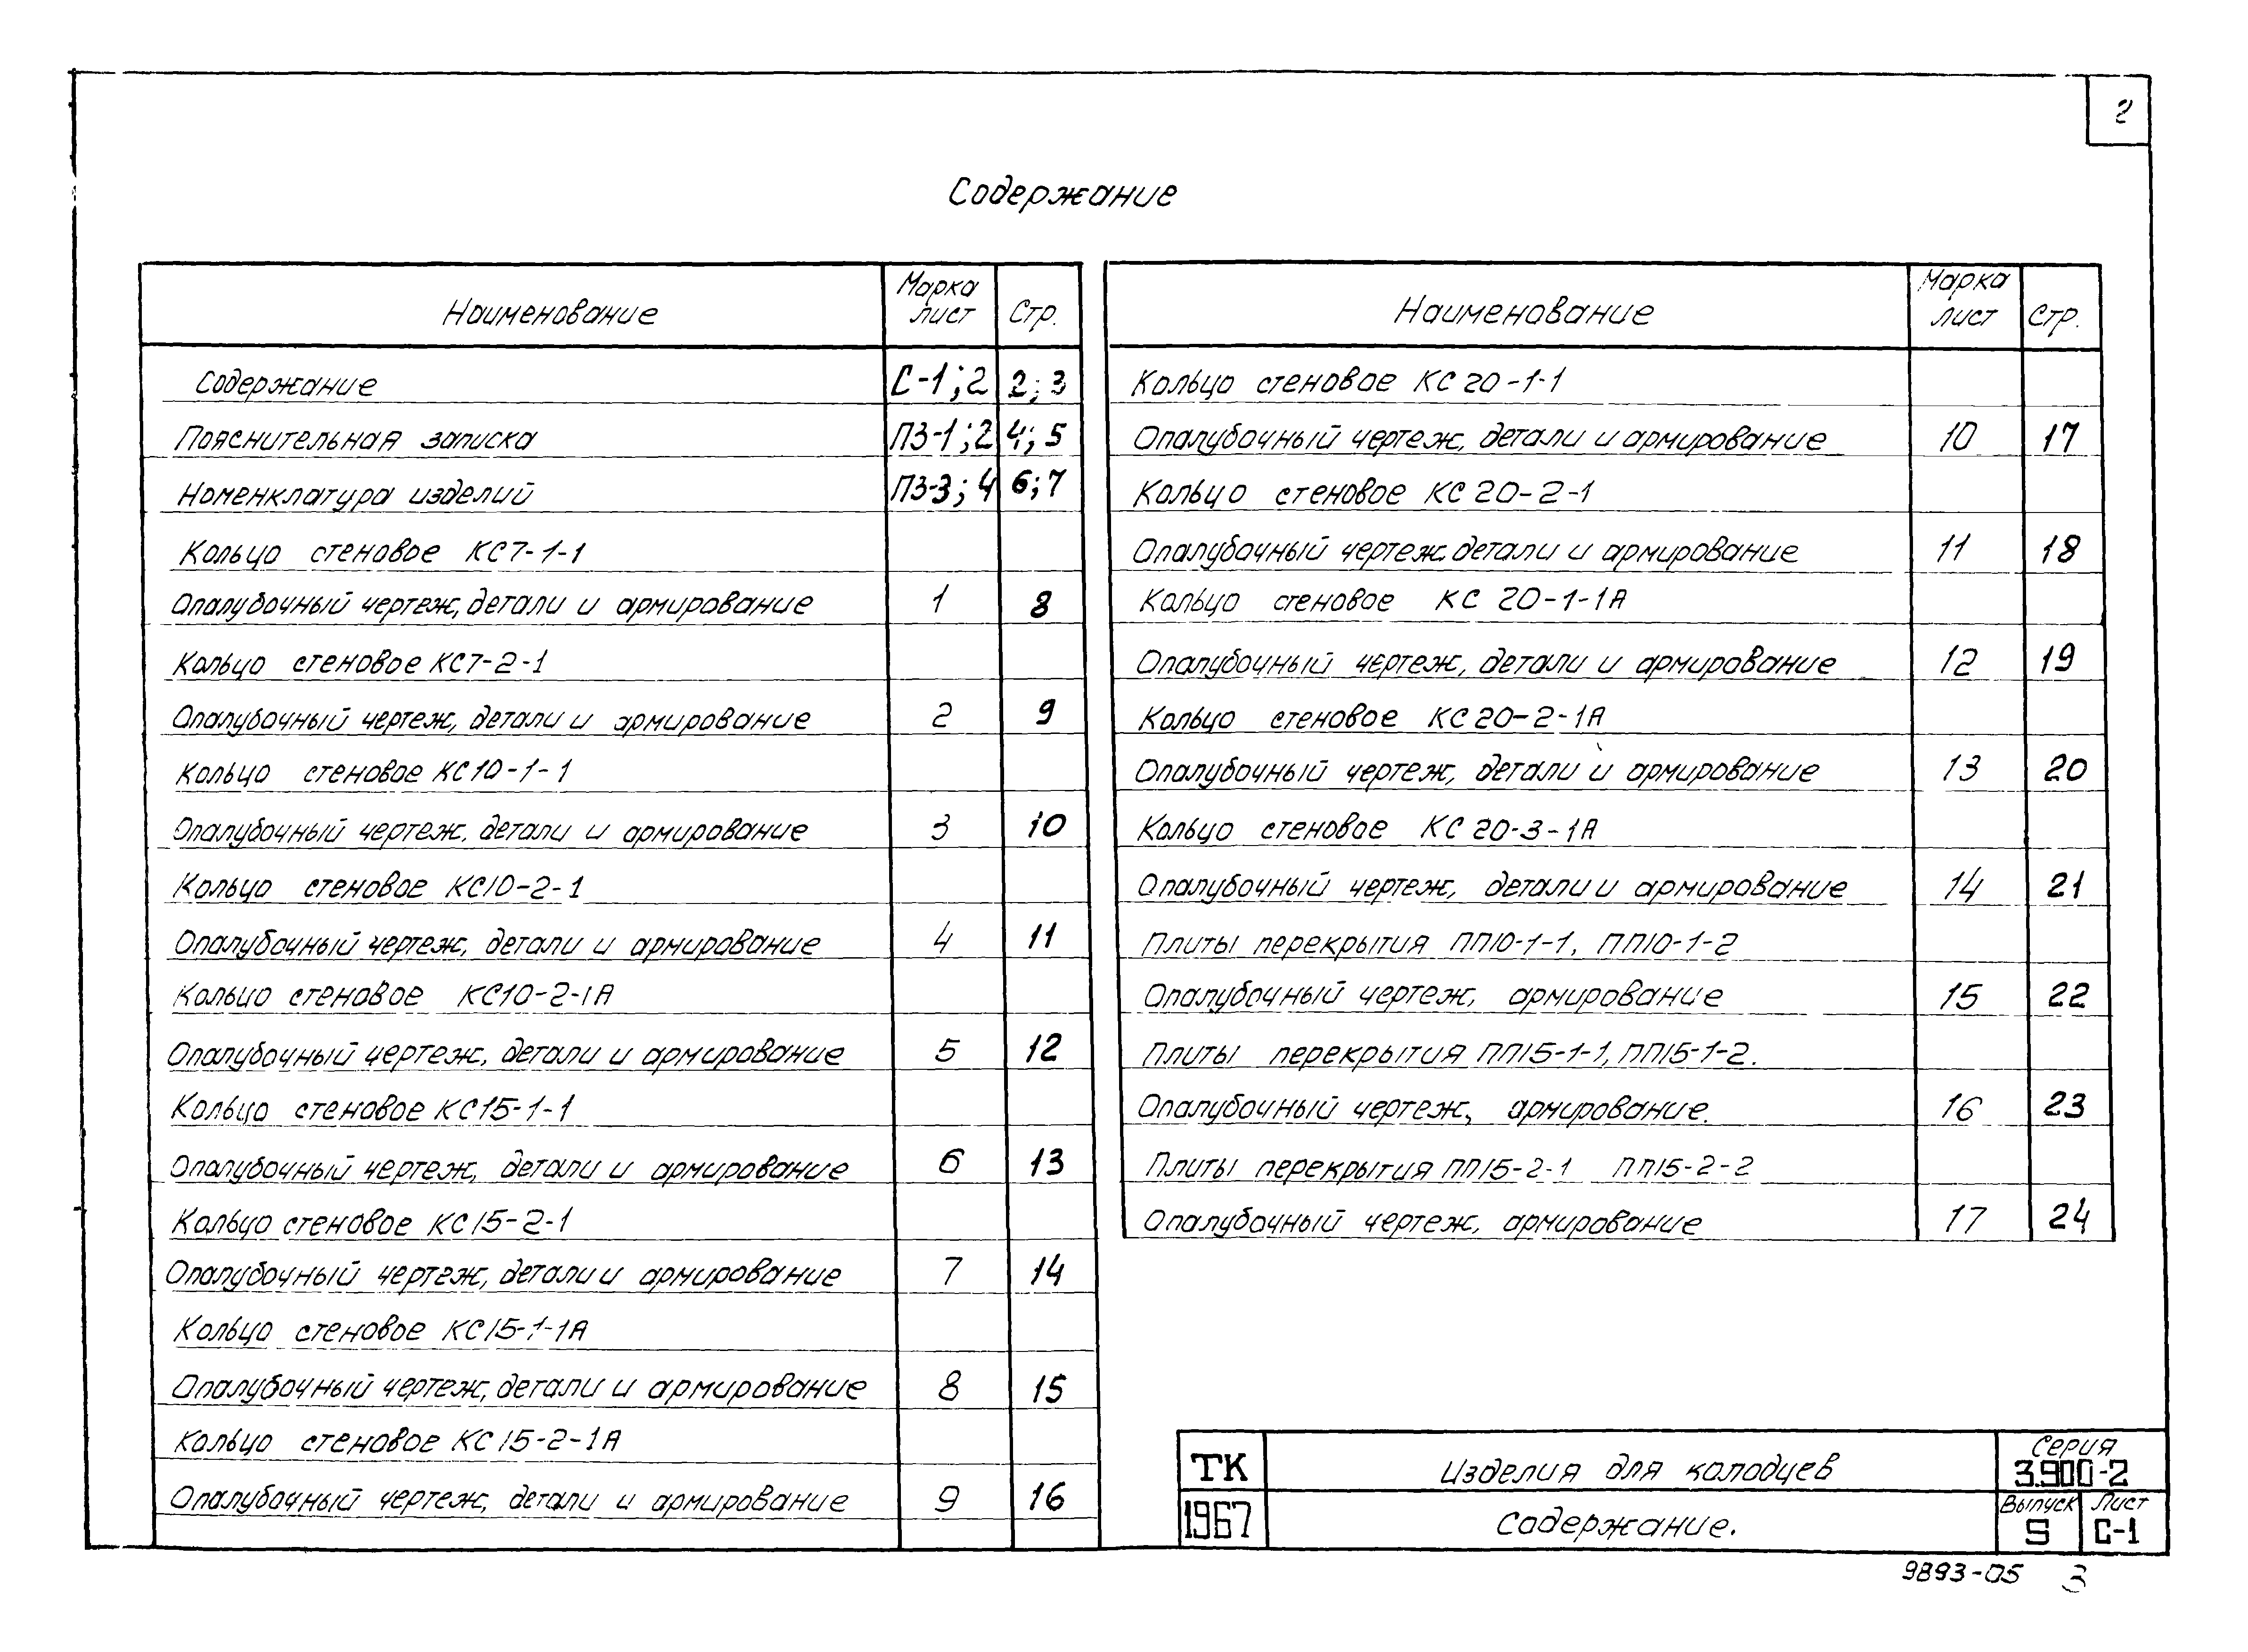 2
Содержание
Наименование Марка лист Стр.
Содержание С-1;2 2;3
Пояснительная записка ПЗ-1;2 4;5
Номенклатура изделий ПЗ-3;4 6;7
Кольцо стеновое КС7-1-1
Опалубочный чертеж, детали и армирование 1 8
Кольцо стеновое КС7-2-1
Опалубочный чертеж, детали и армирование 2 9
Кольцо стеновое КС10-1-1
Опалубочный чертеж, детали и армирование 3 10
Кольцо стеновое КС10-2-1
Опалубочный чертеж, детали и армирование 4 11
Кольцо стеновое КС10-2-1А
Опалубочный чертеж, детали и армирование 5 12
Кольцо стеновое КС15-1-1
Опалубочный чертеж, детали и армирование 6 13
Кольцо стеновое КС15-2-1
Опалубочный чертеж, детали и армирование 7 14
Кольцо стеновое КС15-1-1А
Опалубочный чертеж, детали и армирование 8 15
Кольцо стеновое КС15-2-1А
Опалубочный чертеж, детали и армирование 9 16
Наименование Марка лист Стр.
Кольцо стеновое КС20-1-1
Опалубочный чертеж, детали и армирование 10 17
Кольцо стеновое КС20-2-1
Опалубочный чертеж детали и армирование 11 18
Кольцо стеновое КС 20-1-1А
Опалубочный чертеж, детали и армирование 12 19
Кольцо стеновое КС20-2-1А
Опалубочный чертеж, детали и армирование 13 20
Кольцо стеновое КС20-3-1А
Опалубочный чертеж, детали и армирование 14 21
Плиты перекрытия ПП10-1-1, ПП10-1-2
Опалубочный чертеж, армирование 15 22
Плиты перекрытия ПП15-1-1, ПП15-1-2.
Опалубочный чертеж, армирование. 16 23
Плиты перекрытия ПП15-2-1 ПП15-2-2
Опалубочный чертеж, армирование 17 24
ТК Изделия для колодцев Серия 3.900-2
1967 Содержание. Выпуск 5 Лист С-1
9893-05 3